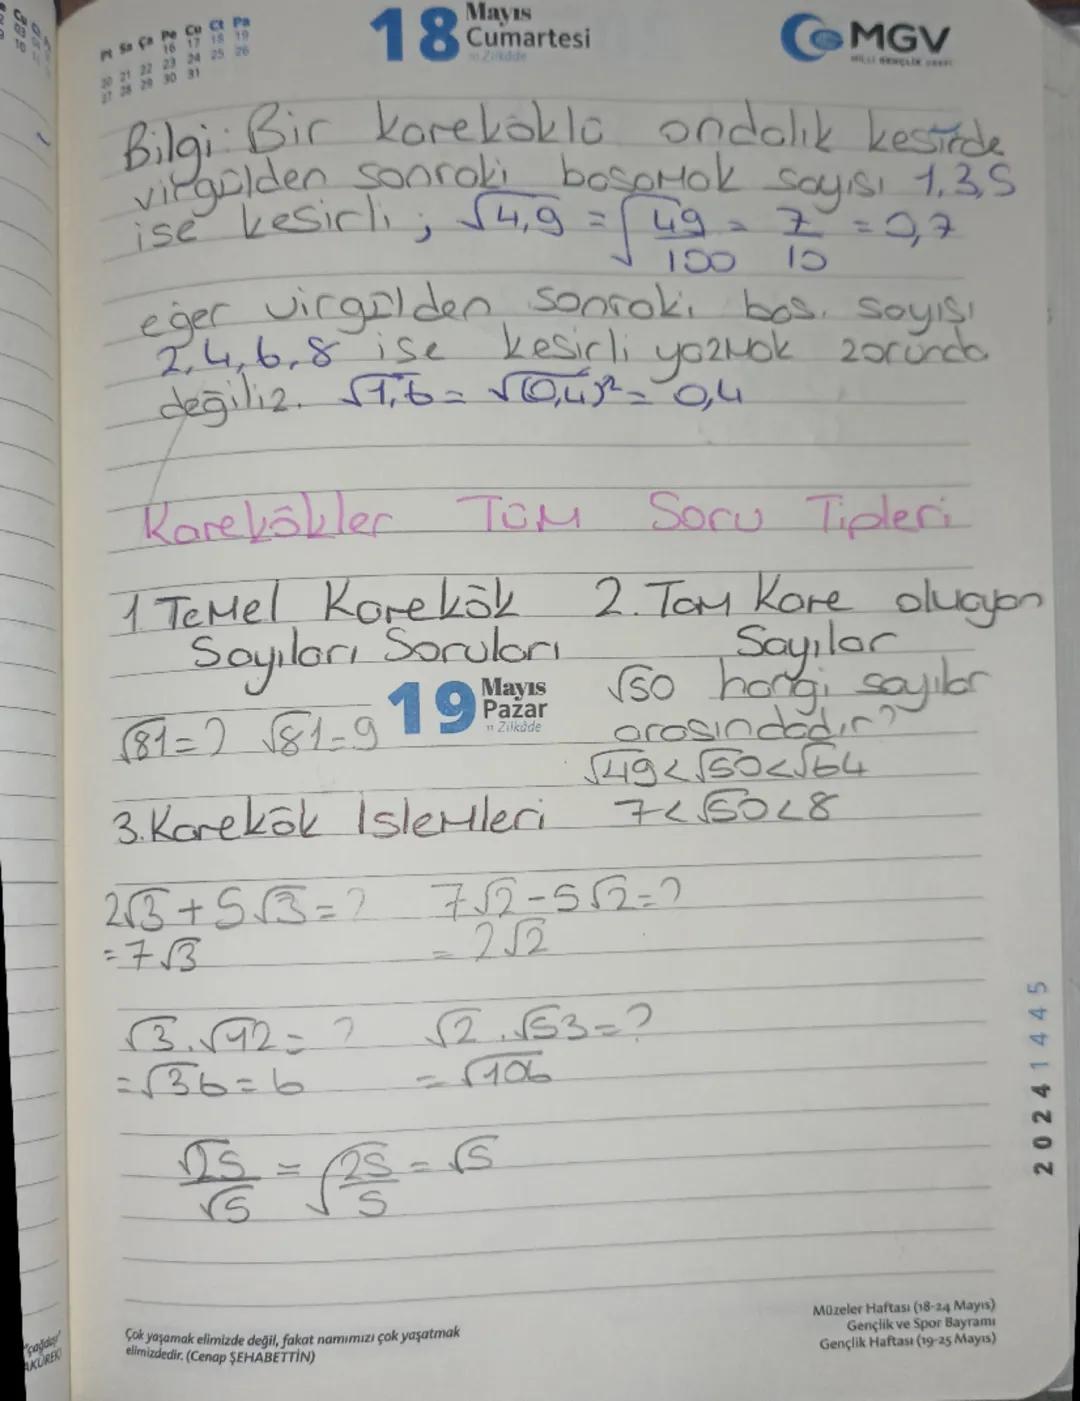 Pt Sa Ça Pe Cu Ct Pa
16 17 18 19
20 21 22 23 24 25 26
27 28 29 30 31
18 Mayıs
Cumartesi
MGV
MİLLİ GENÇLİK VAKFI
Bilgi: Bir kareköklü ondalık kesirde
virgülden sonraki basamak sayısı 1,3,5
ise kesirli; √4,9 = √49/100 = 7/10 = 0,7
eğer virgülden sonraki bas. sayısı
2,4,6,8 ise kesirli yazmak zorunda
değiliz. √1,6 = √(0,4)² = 0,4
Karekökler Tüm Soru Tipleri
1 Temel Karekök
Sayıları Soruları
√81=? √81=9
2. Tam Kare olmayan
Sayılar
√50 hangi sayılar
arasındadır?
√49<√50<√64
7<√50<8
19 Mayıs
Pazar
11 Zilkâde
3. Karekök İslemleri
2√3+5√3=? 7√2-5√2=?
=7√3 =2√2
√3.√12=? √2.√53=?
=√36=6 =√106
√25/√5 = √25/5 = √5
2024 1445
Müzeler Haftası (18-24 Mayıs)
Gençlik ve Spor Bayramı
Gençlik Haftası (19-25 Mayıs)
Çok yaşamak elimizde değil, fakat namımızı çok yaşatmak
elimizdedir. (Cenap ŞEHABETTİN)